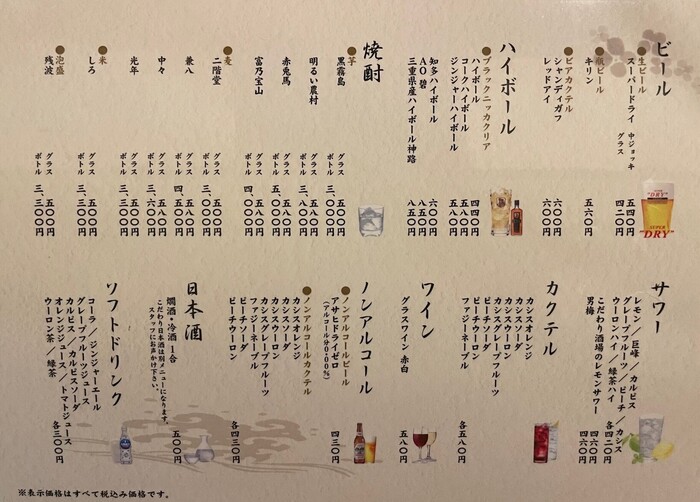 ビール
●生ビール
スーパードライ 中ジョッキ 五四〇円
グラス 四二〇円
●瓶ビール
キリン 五六〇円
●ビアカクテル
シャンディガフ 六〇〇円
レッドアイ 六〇〇円
ハイボール
●ブラックニッカクリア
ハイボール 四四〇円
コークハイボール 五八〇円
ジンジャーハイボール 五八〇円
知多ハイボール 六〇〇円
AO 碧 八五〇円
三重県産ハイボール神路 八五〇円
焼酎
●芋
黒霧島 グラス 五〇〇円
ボトル 三、〇〇〇円
明るい農村 グラス 五八〇円
ボトル
赤兎馬 グラス 五八〇円
ボトル
富乃宝山 グラス 五八〇円
ボトル 四、〇〇〇円
●麦
二階堂 グラス 五〇〇円
ボトル 三、〇〇〇円
兼八 グラス 五八〇円
ボトル 四、五〇〇円
中々 グラス 五五〇円
ボトル 三、六〇〇円
光年 グラス 五〇〇円
ボトル
●米
しろ グラス 五〇〇円
ボトル 三、〇〇〇円
●泡盛
残波 グラス 五〇〇円
ボトル 三、三〇〇円
サワー
レモン／巨峰／カルピス
グレープフルーツ／ピーチ／カシス 各四二〇円
ウーロンハイ／緑茶ハイ 四六〇円
こだわり酒場のレモンサワー 四六〇円
男梅
カクテル
カシスオレンジ
カシスソーダ
カシスウーロン
カシスグレープフルーツ
ピーチソーダ
ピーチウーロン
ファジーネーブル 各五八〇円
ワイン
グラスワイン 赤白 五八〇円
ノンアルコール
●ノンアルコールビール
アサヒドライゼロ 四三〇円
（アルコール分0.00%）
●ノンアルコールカクテル
カシスオレンジ
カシスソーダ
カシスウーロン
カシスグレープフルーツ
ファジーネーブル
ピーチソーダ
ピーチウーロン 各四三〇円
日本酒
燗酒・冷酒 1合 五〇〇円
こだわり日本酒は別メニューになります。
スタッフにお声かけ下さい。
ソフトドリンク
コーラ／ジンジャエール
グレープフルーツジュース
カルピス／カルピスソーダ
オレンジジュース／トマトジュース
ウーロン茶／緑茶 各三〇〇円
※表示価格はすべて税込み価格です。
SUPER "DRY"